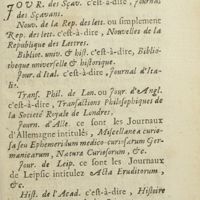 JOUR. des Sçav. c'est-à-dire, Journal
des Sçavans.
Nouv. de la Rep. des lett. ou simplement
Rep. des lett. c'est-à-dire, Nouvelles de la
Republique des Lettres.
Biblioe. univ. & hist. c'est-à-dire, Biblio-
theque universelle & historique.
Jour. d'Ital. c'est-à-dire, Journal d'Ita-
lie.
Trans. Phil. de Lon. ou Jour. d'Angl.
c'est-à-dire, Transactions Philosophiques de
la Societé Royale de Londres.
Journ. d'Alle. ce sont les Journaux
d'Allemagne intitulés, Miscellanea curio-
sa seu Ephemeridum medico-curiosarum Ger-
manicarum, Naturæ Curiosorum, &c.
Jour. de Leip. ce sont les Journaux
de Leipsic intitulez Acta Eruditorum,
&c.
Hist. de l'Acad. c'est-à-dire, Histoire